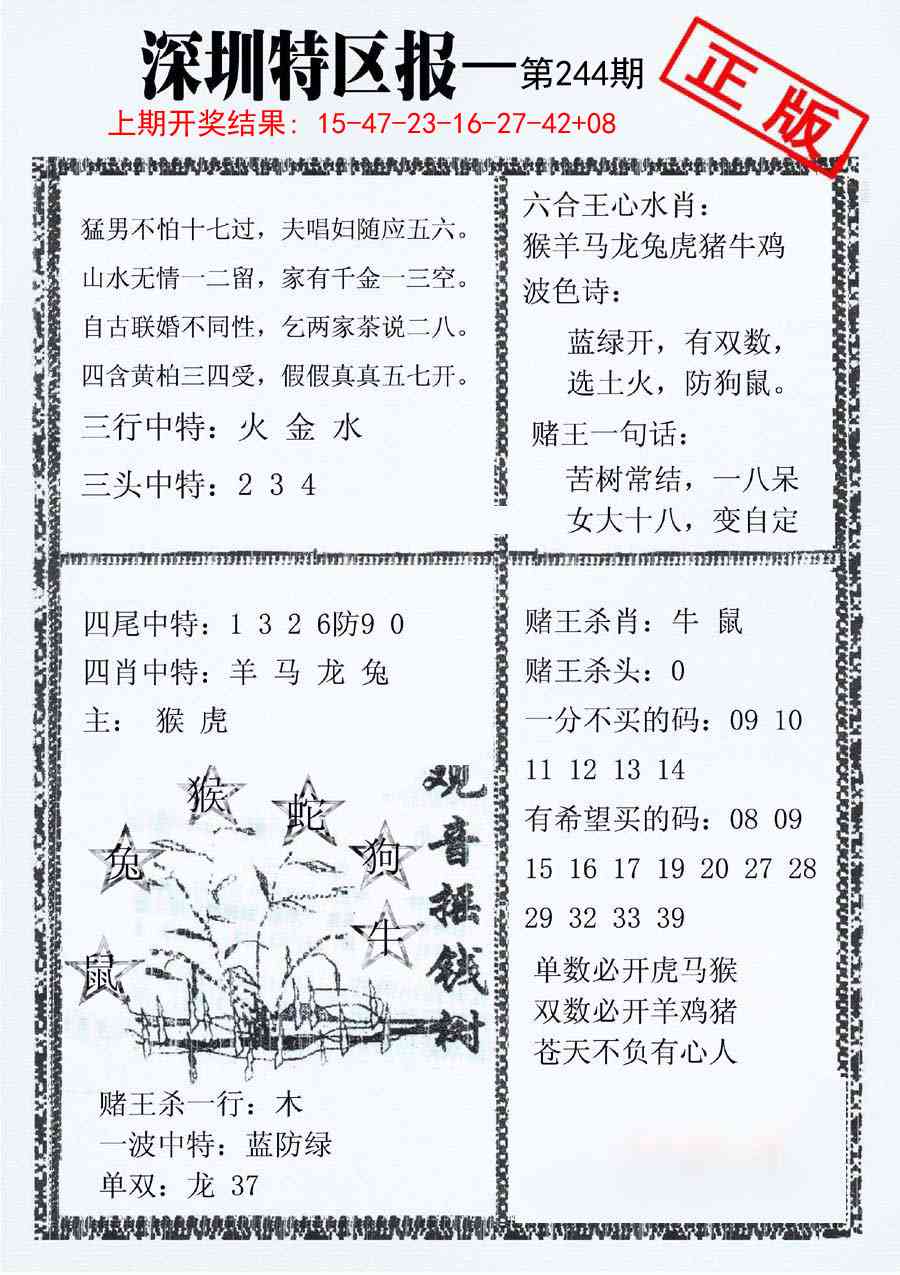 深圳特区报—第244期
正版
上期开奖结果：15-47-23-16-27-42+08
猛男不怕十七过，夫唱妇随应五六。
山水无情一二留，家有千金一三空。
自古联婚不同性，乞两家茶说二八。
四含黄柏三四受，假假真真五七开。
三行中特：火 金 水
三头中特：2 3 4
六合王心水肖：
猴羊马龙兔虎猪牛鸡
波色诗：
蓝绿开，有双数，
选土火，防狗鼠。
赌王一句话：
苦树常结，一八呆
女大十八，变自定
四尾中特：1 3 2 6防9 0
四肖中特：羊 马 龙 兔
主： 猴 虎
猴
蛇
兔
狗
牛
鼠
观音摇钱树
赌王杀一行：木
一波中特：蓝防绿
单双：龙 37
赌王杀肖：牛 鼠
赌王杀头：0
一分不买的码：09 10
11 12 13 14
有希望买的码：08 09
15 16 17 19 20 27 28
29 32 33 39
单数必开虎马猴
双数必开羊鸡猪
苍天不负有心人